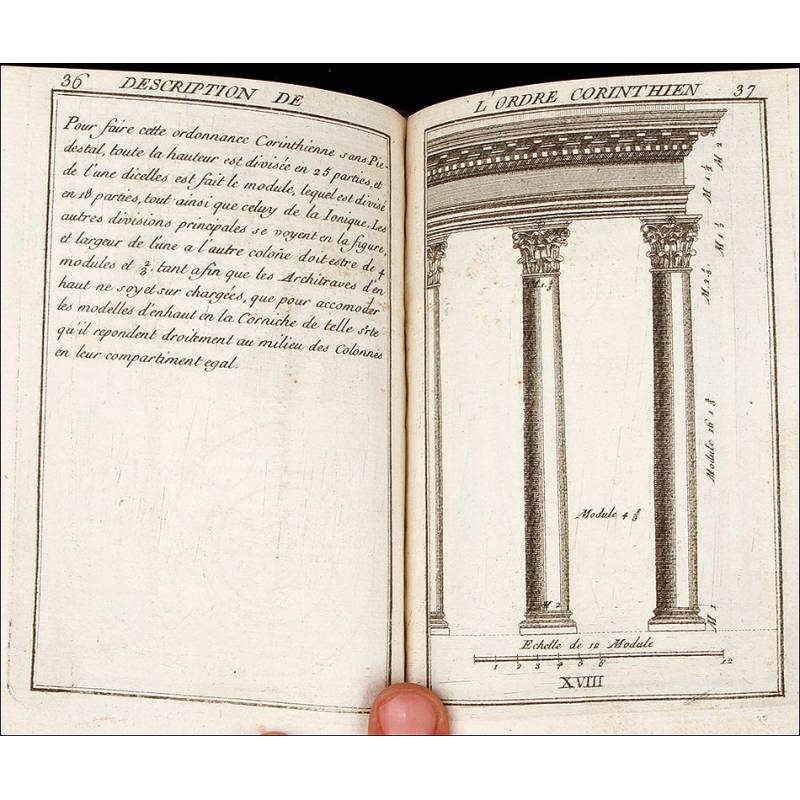 36 DESCRIPTION DE
Pour faire cette ordonnance Corinthienne sans Pie-
destal, toute la hauteur est divisée en 25 parties, et
de l'une dicelles est fait le module, lequel est divisé
en 18 parties, tout ainsi que celuy de la Ionique. Les
autres divisions principales se voyent en la figure,
et largeur de l'une a l'autre coloñe doit estre de 4
modules et 2/3. tant afin que les Architraves d'en
haut ne soyet sur chargées, que pour accomoder
les modelles d'enhaut en la Corniche de telle srte
qu'il repondent droitement au milieu des Colonnes
en leur compartiment egal.
L'ORDRE CORINTHIEN 37
M 2
M 1 1/2
M 1 1/2
M 2 1/3
M 1 2/3
Module 16 2/3
Module 4 2/3
M 2
M 1
Echelle de 12 Module
1 2 3 4 5 6 12
XVIII